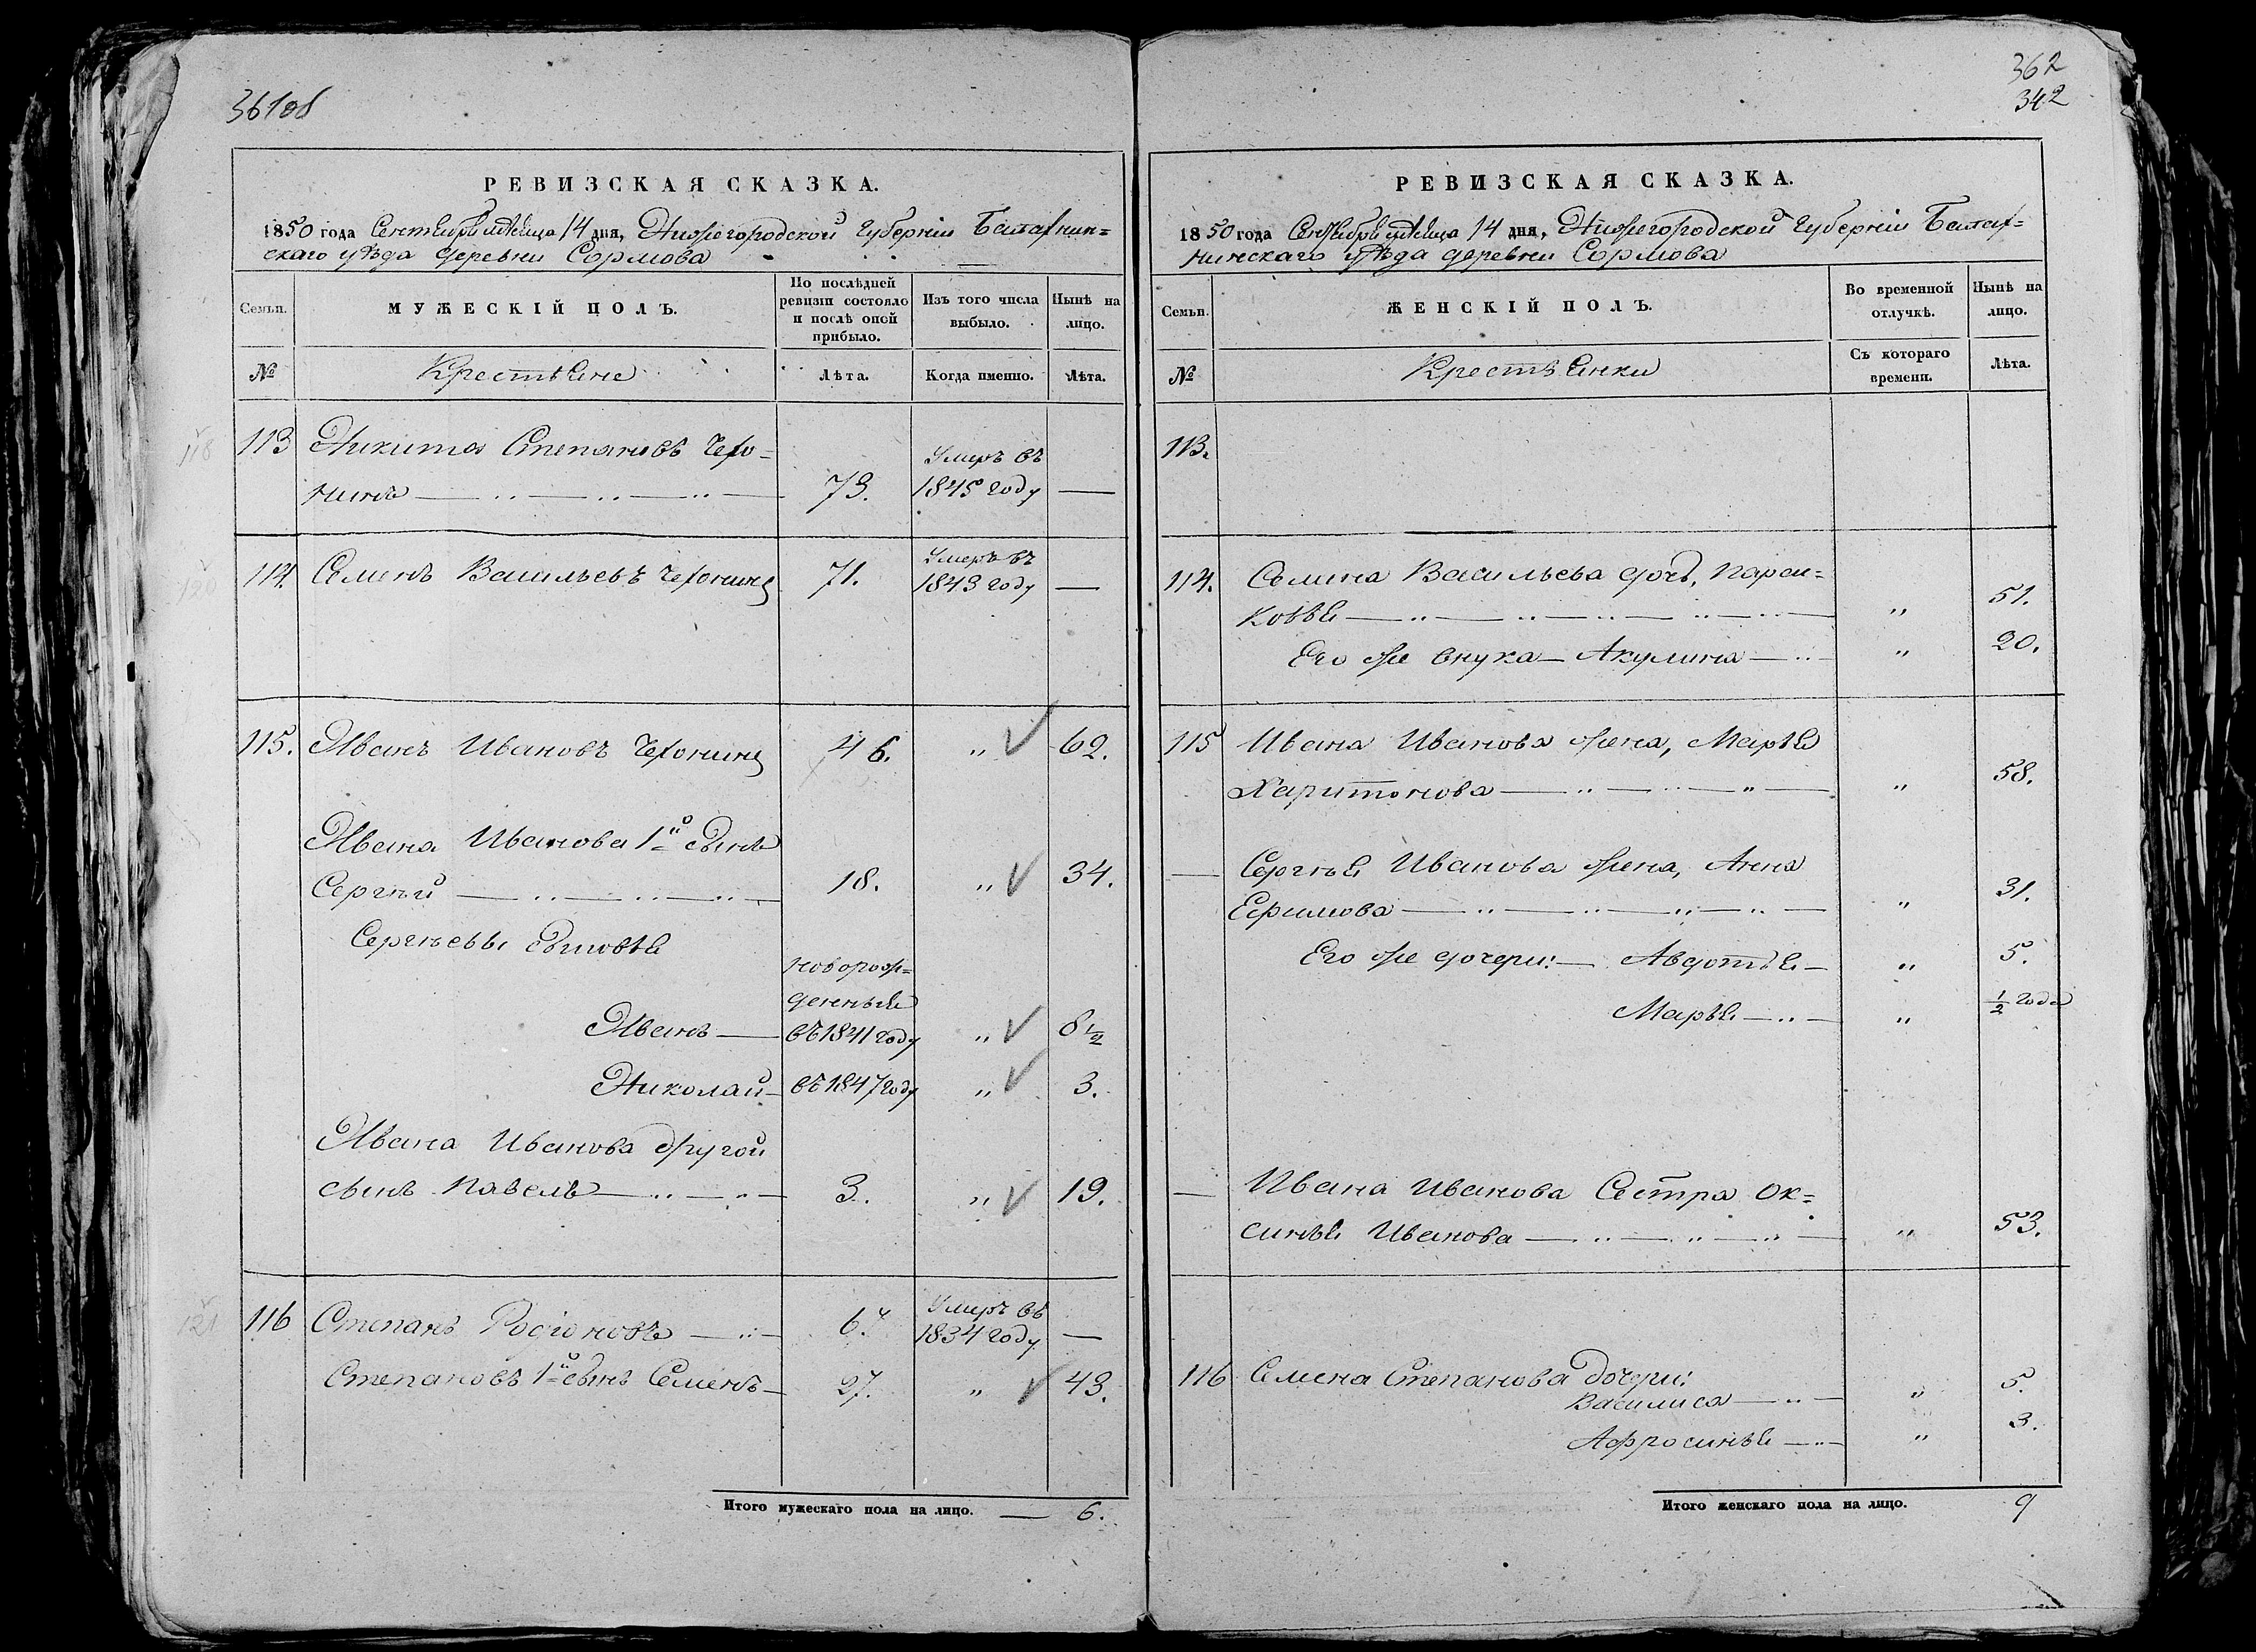 361об
РЕВИЗСКАЯ СКАЗКА.
1850 года Сентября мѣсяца 14 дня, Нижегородской Губерніи Балахнин=
скаго уѣзда деревни Сормова
Семьи.
МУЖЕСКІЙ ПОЛЪ.
По послѣдней
ревизіи состояло
и послѣ оной
прибыло.
Изъ того числа
выбыло.
Нынѣ на
лицо.
№
Крестьяне
Лѣта.
Когда именно.
Лѣта.
113 Никита Степановъ Чехо=
нинъ 73. Умеръ въ
1845 году —
114. Семенъ Васильевъ Чехонинъ 71. Умеръ въ
1843 году —
115. Иванъ Ивановъ Чехонинъ 46. „ 62.
Ивана Иванова 1й сынъ
Сергѣй 18. „ 34.
Сергѣевы сыновья
новорож=
денныя
Иванъ — въ 1841 году „ 8 1/2
Николай — въ 1847 году „ 3.
Ивана Иванова другой
сынъ Павелъ 3. „ 19.
116 Степанъ Родіоновъ 67. Умеръ въ
1834 году —
Степановъ 1й сынъ Семенъ — 27. „ 43.
Итого мужескаго пола на лицо. — 6.
362
342
РЕВИЗСКАЯ СКАЗКА.
1850 года Сентября мѣсяца 14 дня, Нижегородской Губерніи Балах=
нинскаго уѣзда деревни Сормова
Семьи.
ЖЕНСКІЙ ПОЛЪ.
Во временной
отлучкѣ.
Нынѣ на
лицо.
№
Крестьянки
Съ котораго
времени.
Лѣта.
113.
114. Семена Васильева дочь, Парас=
ковья „ 51.
Его же внука — Акулина „ 20.
115 Ивана Иванова жена, Марья
Харитонова „ 58.
— Сергѣя Иванова жена, Анна
Ефимова „ 31.
Его же дочери: — Авдотья — „ 5.
Марья „ 1/2 года
— Ивана Иванова Сестра Ок=
синья Иванова „ 53.
116 Семена Степанова Дочери:
Василиса „ 5.
Афросинья „ 3.
Итого женскаго пола на лицо. 9